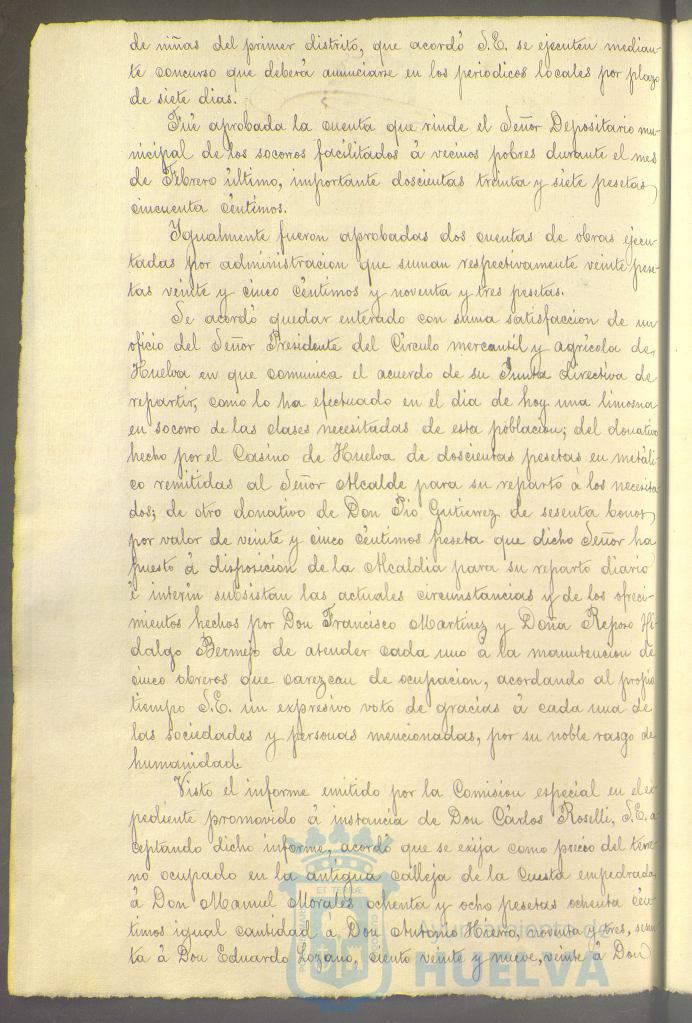 de niñas del primer distrito, que acordó S.E. se ejecuten median-
te concurso que deberá anunciarse en los periodicos locales por plazo
de siete dias.
Fué aprobada la cuenta que rinde el Señor Depositario mu-
nicipal de los socorros facilitados á vecinos pobres durante el mes
de Febrero último, importante doscientas treinta y siete pesetas,
cincuenta céntimos.
Igualmente fueron aprobadas dos cuentas de obras ejecu-
tadas por administracion que suman respectivamente veinte pese-
tas veinte y cinco céntimos y noventa y tres pesetas.
Se acordó quedar enterado con suma satisfaccion de un
oficio del Señor Presidente del Círculo mercantil y agrícola de
Huelva en que comunica el acuerdo de su Junta directiva de
repartir, como lo ha efectuado en el dia de hoy una limosna
en socorro de las clases necesitadas de esta poblacion; del donativo
hecho por el Casino de Huelva de doscientas pesetas en metáli-
co remitidas al Señor Alcalde para su reparto á los necesita-
dos; de otro donativo de Don Pío Gutierrez de sesenta bonos
por valor de veinte y cinco céntimos peseta que dicho Señor ha
puesto á disposicion de la Alcaldia para su reparto diario
é interin subsistan las actuales circunstancias y de los ofreci-
mientos hechos por Don Francisco Martínez y Doña Reposo Hi-
dalgo Bermejo de atender cada uno á la manutencion de
cinco obreros que carezcan de ocupacion, acordando al propio
tiempo S.E. un expresivo voto de gracias á cada una de
las sociedades y personas mencionadas, por su noble rasgo de
humanidad.
Visto el informe emitido por la Comision especial en el ex-
pediente promovido á instancia de Don Cárlos Roselli, S.E. a-
ceptando dicho informe, acordó que se exija como precio del terre-
no ocupado en la antigua calleja de la Cuesta empedrada
á Don Manuel Morales ochenta y ocho pesetas ochenta cén-
timos igual cantidad á Don Antonio Hierro, noventa y tres, sesen-
ta á Don Eduardo Lozano, ciento veinte y nueve, veinte á Don
Ayuntamiento de
HUELVA